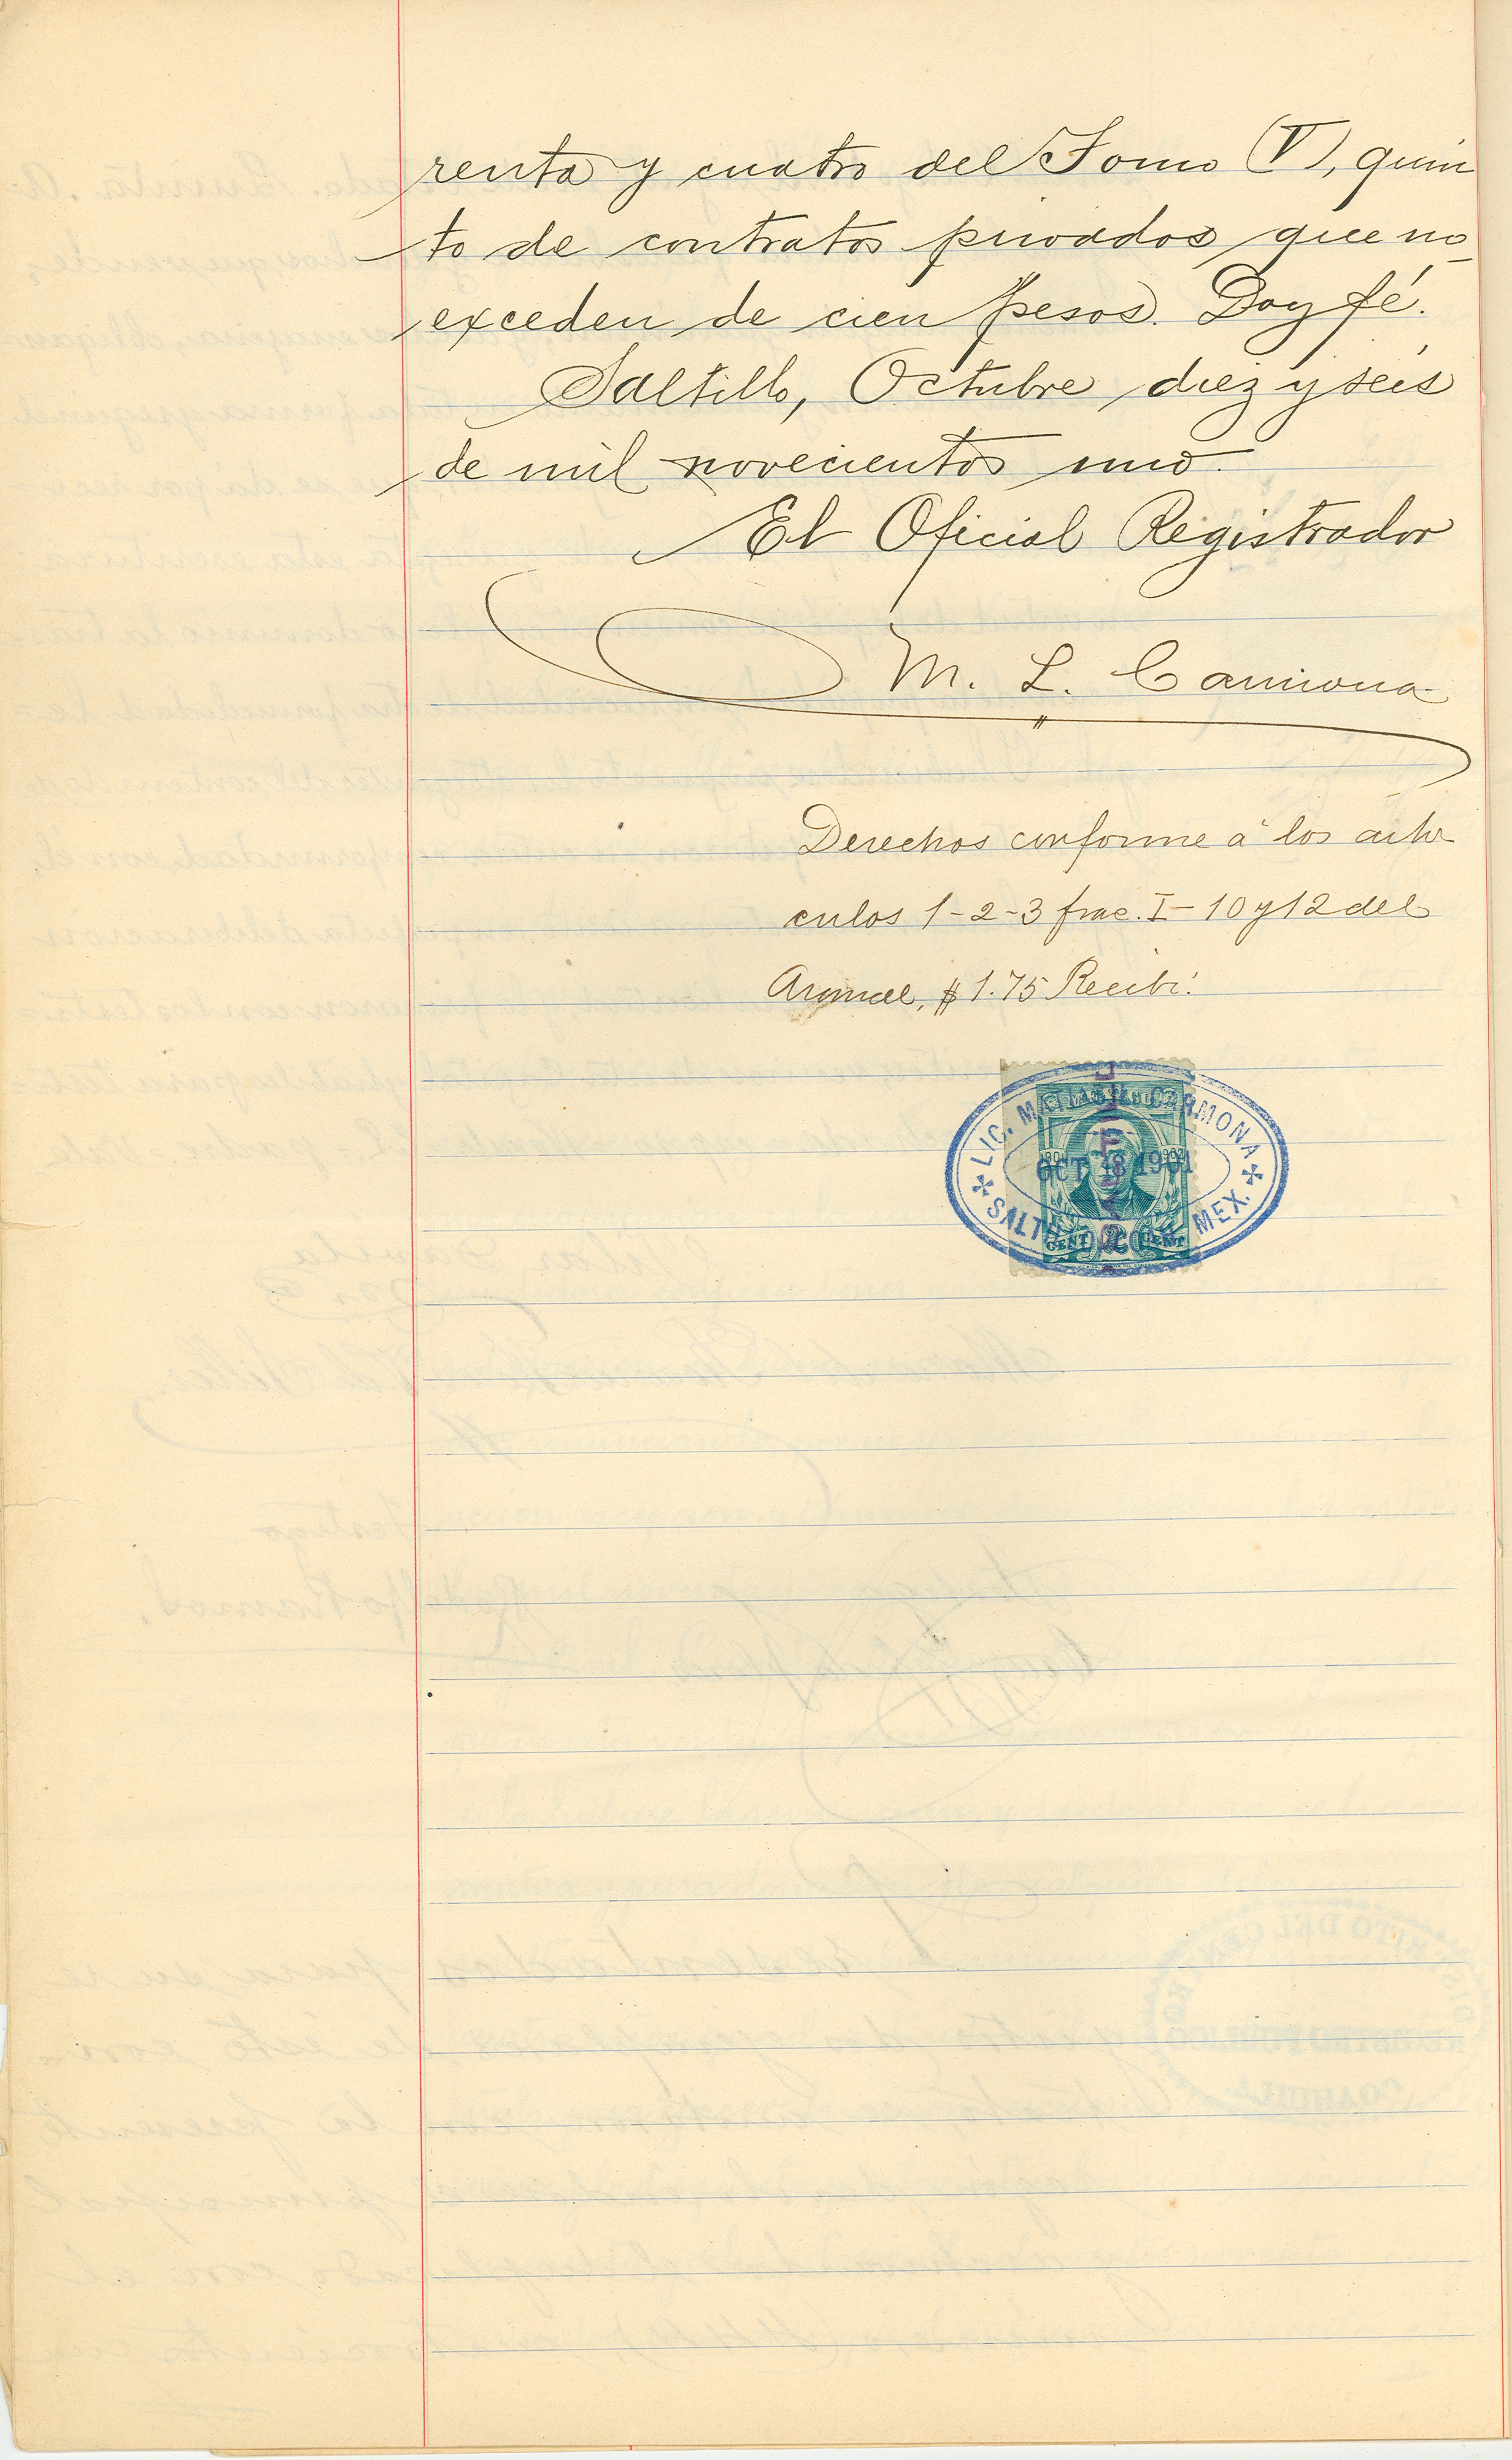 renta y cuatro del Tomo (V), quin
to de contratos privados que no
exceden de cien pesos. Doy fé.
Saltillo, Octubre diez y seis
de mil novecientos uno.
El Oficial Registrador
M. L. Carmona
Derechos conforme á los artí
culos 1-2-3 frac. I-10 y 12 del
Arancel, $1.75 Recibí.
LIC. CARMONA
OCT 1901
CENT CENT
SALT MEX.